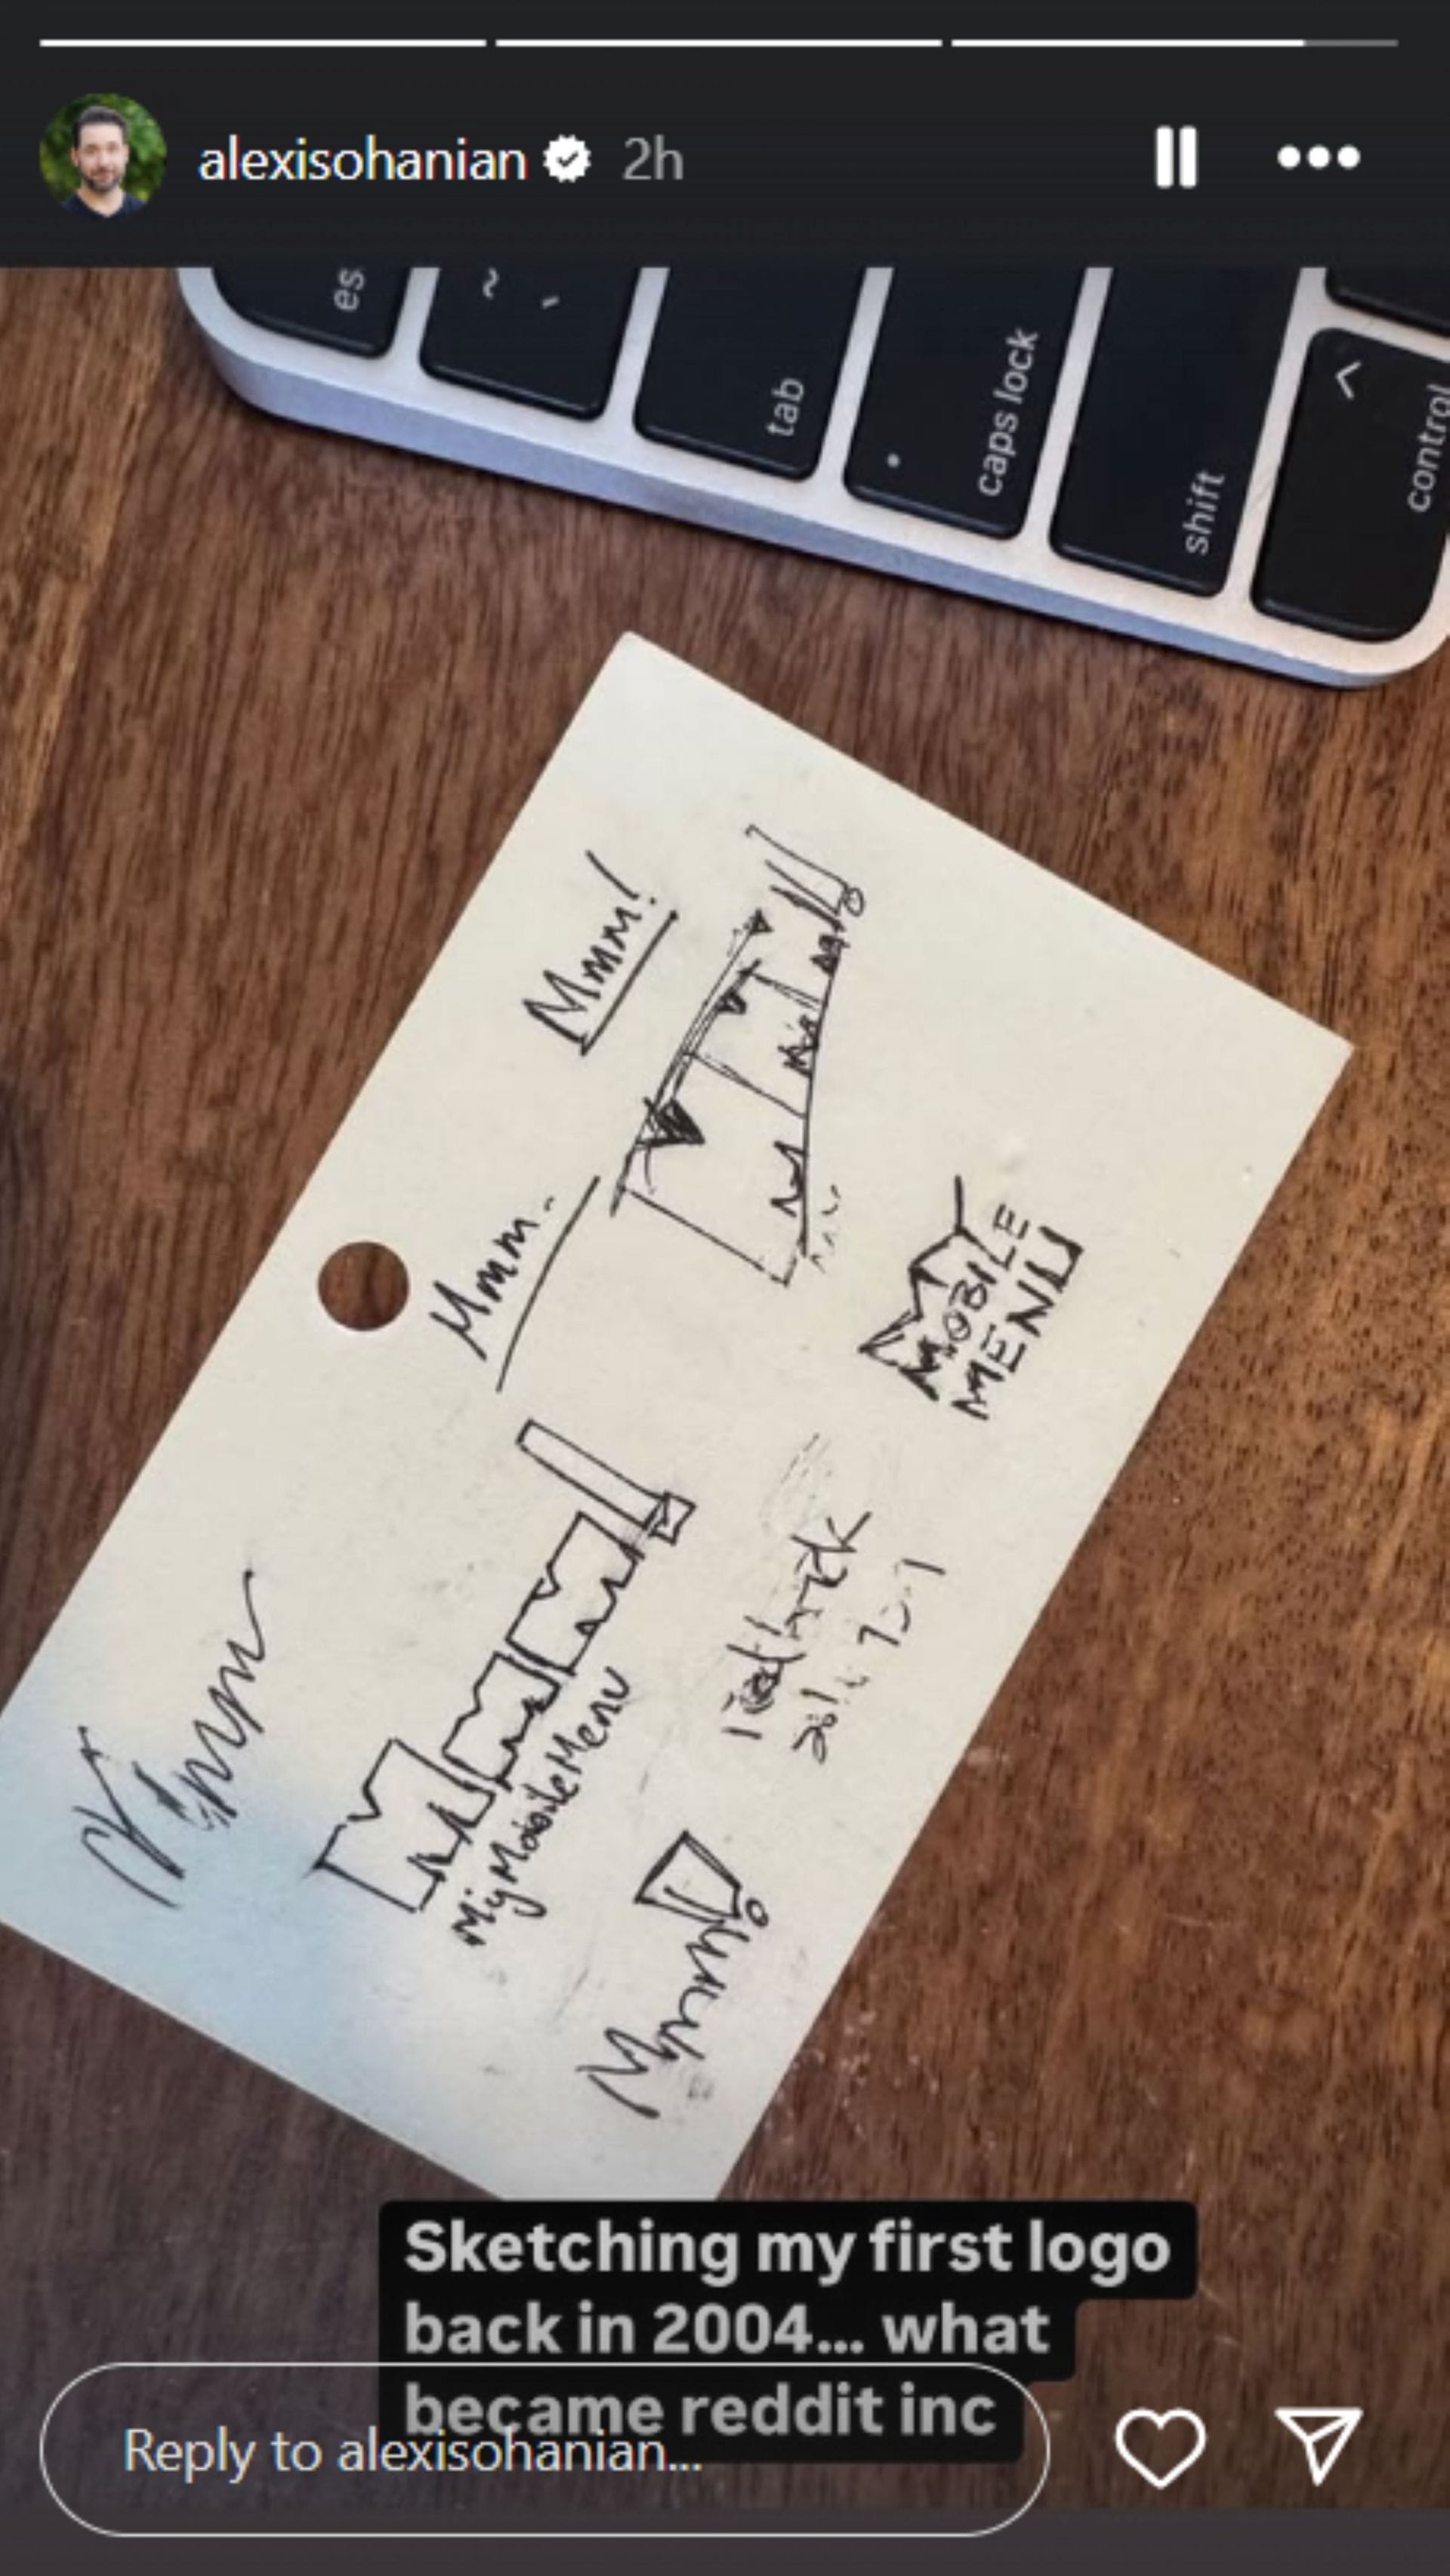 alexisohanian 2h
esc
~
`
tab
caps lock
shift
^
control
Mmm!
Mmm.
Mmm
MyMobileMenu
MY
MOBILE
MENU
Sketching my first logo
back in 2004... what
became reddit inc
Reply to alexisohanian...